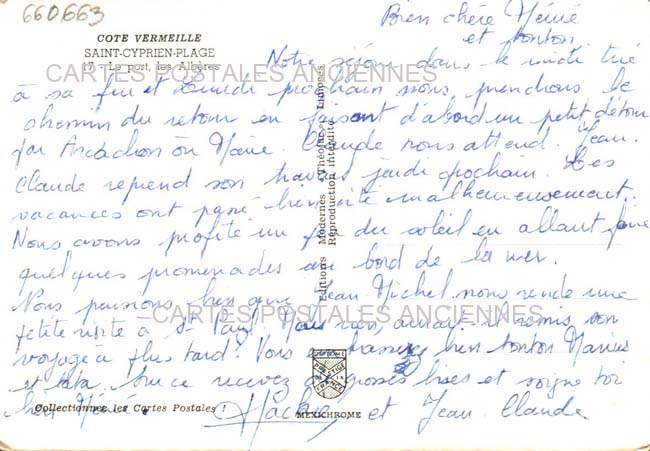 660663
COTE VERMEILLE
SAINT-CYPRIEN-PLAGE
17 - Le port, les Albères
CARTES POSTALES ANCIENNES
Bien chère Mémé
et tonton
Notre séjour dans le midi tire
à sa fin et Lundi prochain nous prendrons le
chemin du retour en faisant d'abord un petit détour
par Arcachon où Marie Claude nous attend. Jean.
Claude reprend son travail jeudi prochain. Les
vacances ont passé bien vite malheureusement.
Nous avons profité un peu du soleil en allant faire
quelques promenades au bord de la mer.
Nous pensions bien que Jean Michel nous rende une
petite visite à St Paul Mais rien, aurait il remis son
voyage à plus tard? Vous embrasserez bien tonton Marius
et tata. Sur ce recevez de grosses bises et soigne toi
bien Mémé.
et Jean. Claude
CARTES POSTALES ANCIENNES
Editions Modernes "Théojac" - Limoges
Reproduction interdite
Collectionnez les Cartes Postales !
MEXICHROME